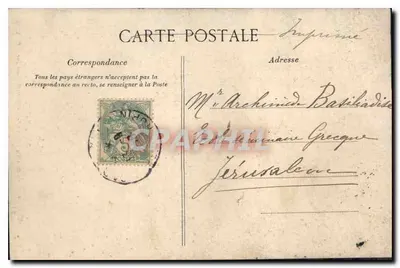 CARTE POSTALE
Imprimé
Correspondance
Tous les pays étrangers n'acceptent pas la
correspondance au recto, se renseigner à la Poste
Adresse
Mr Archimède Basiliadis
Grecque
Jérusalem
CPAPHIL